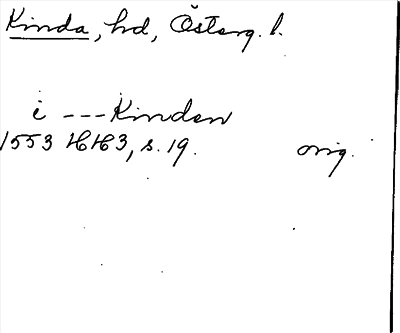 Kinda, hd, Österg. l.
i --- Kinden
1553 HH3, s. 19. orig.